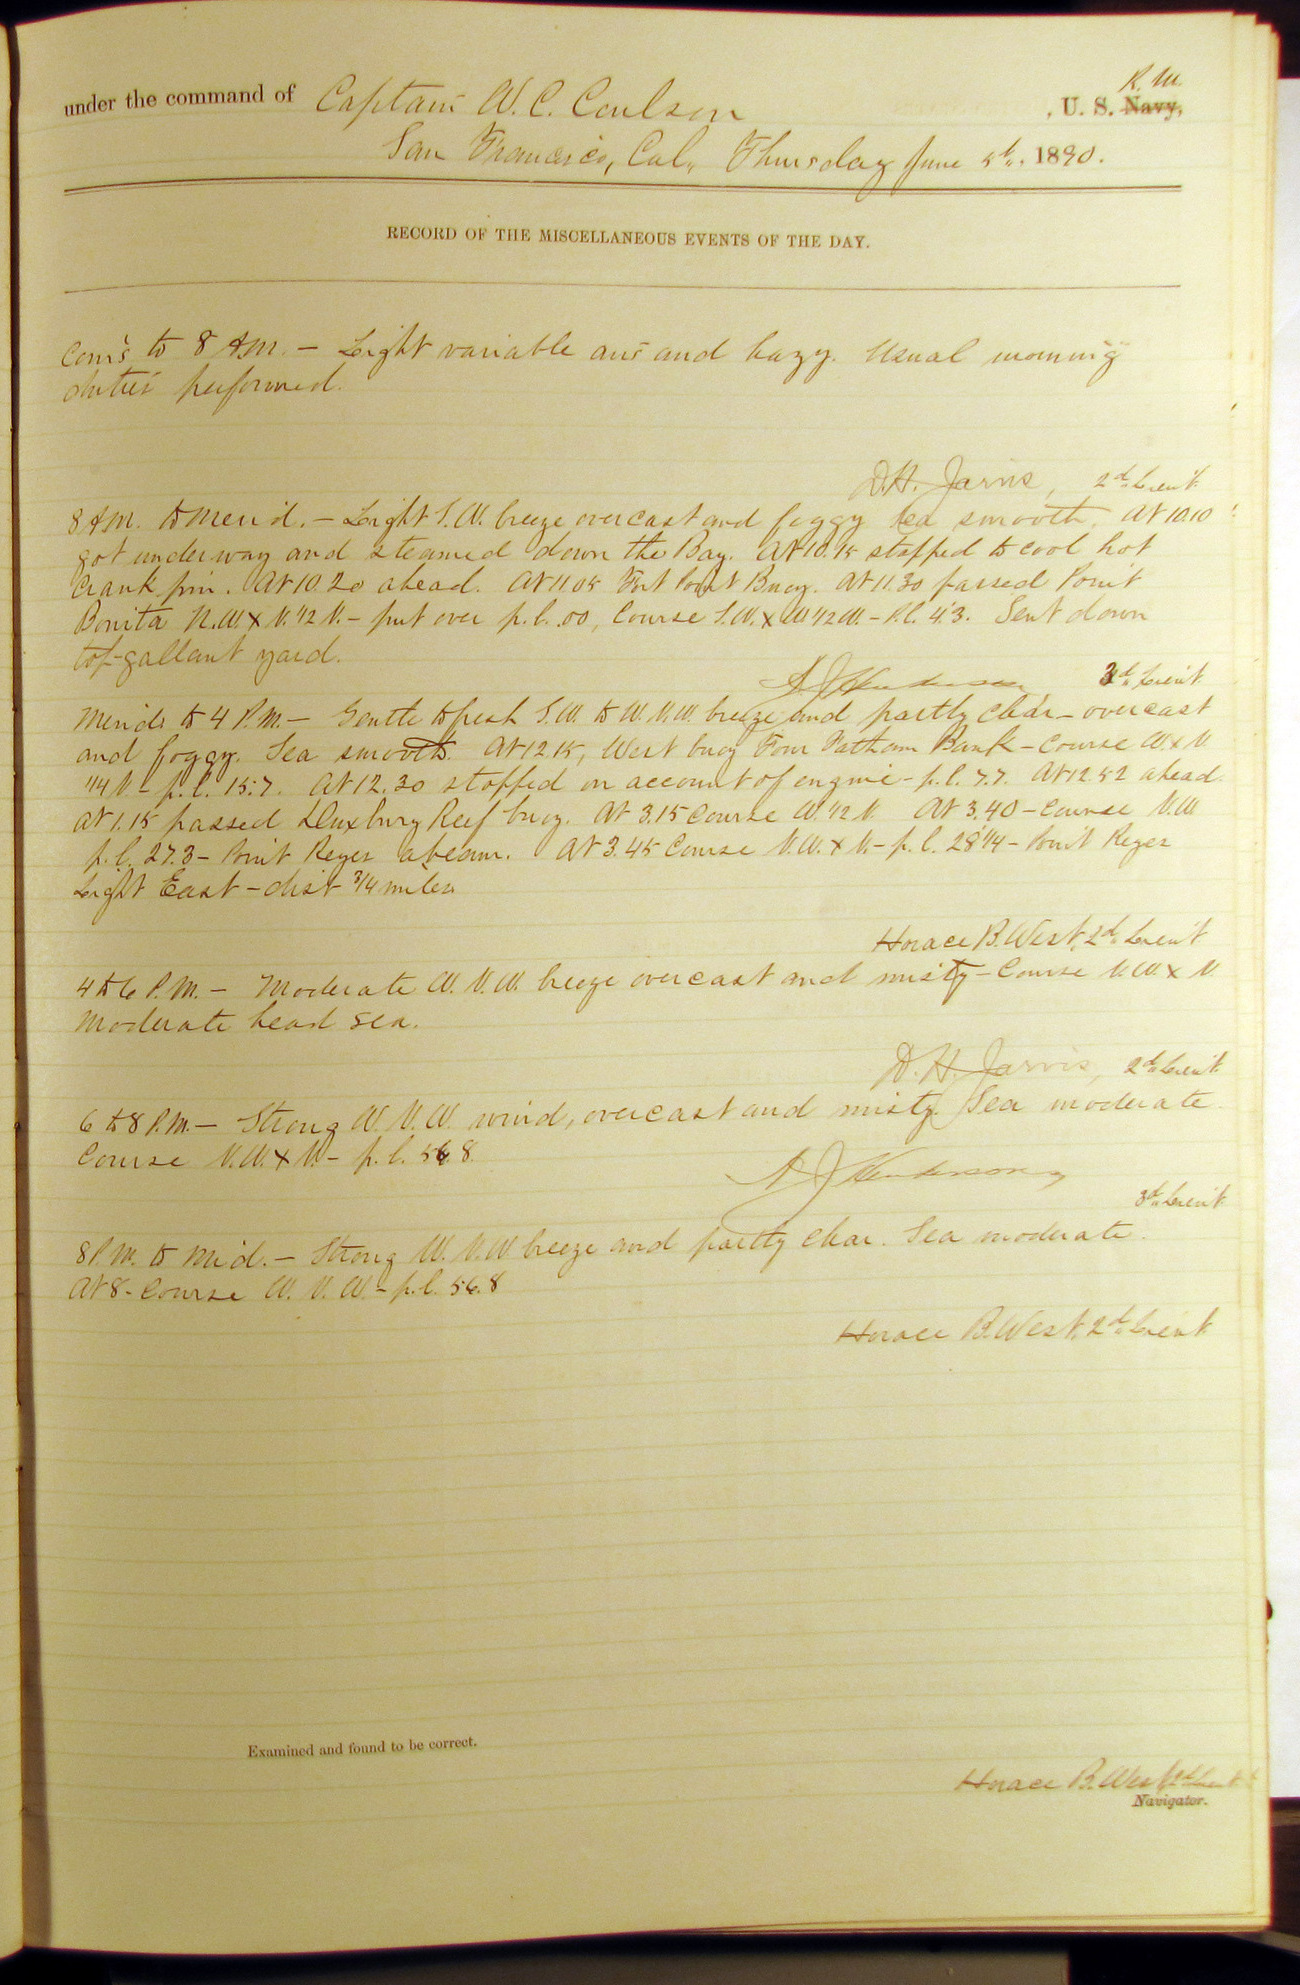 R. M.
under the command of Captain W. C. Coulson , U. S. Navy,
San Francisco, Cal., Thursday June 5th., 1890.
RECORD OF THE MISCELLANEOUS EVENTS OF THE DAY.
Com's to 8 A.M. – Light variable airs and hazy. Usual morning
duties performed.
D.H. Jarvis, 2d. Lieut.
8 A.M. to Merid. – Light S.W. breeze overcast and foggy sea smooth. At 10.10
got underway and steamed down the Bay. At 10.15 stopped to cool hot
crank pin. At 10.20 ahead. At 11.05 Fort Point Buoy. At 11.30 passed Point
Bonita N.W. x N. 1/2 N. – put over p.l. .00, Course S.W. x W 1/2 W. – P.l. 4.3. Sent down
top-gallant yard.
A J Henderson 3d. Lieut.
Merid. to 4 P.M. – Gentle to fresh S.W. to W.N.W. breeze and partly clear – overcast
and foggy. Sea smooth. At 12.15, West buoy Four Fathom Bank – Course W. x N.
1/4 N. – p.l. 15.7. At 12.30 stopped on account of engine – p.l. 7.7. At 12.52 ahead.
At 1.15 passed Duxbury Reef buoy. At 3.15 Course W. 1/2 N. At 3.40 – Course N.W.
p.l. 27.3 – Point Reyes abeam. At 3.45 Course N.W. x N. – p.l. 28 1/4 – Point Reyes
Light East – dist 3/4 miles
Horace B. West, 2d. Lieut.
4 to 6 P.M. – Moderate W.N.W. breeze overcast and misty – Course N.W. x N.
Moderate head sea.
D. H. Jarvis, 2d. Lieut.
6 to 8 P.M. – Strong W. N. W. wind, overcast and misty. Sea moderate.
Course N.W. x N. – p.l. 56.8.
A J Henderson
3d. Lieut.
8 P.M. to Mid. – Strong W. N. W. breeze and partly clear. Sea moderate.
At 8 – Course W. N. W. – p.l. 56.8
Horace B. West, 2d. Lieut.
Examined and found to be correct.
Horace B. West 2d. Lieut.
Navigator.